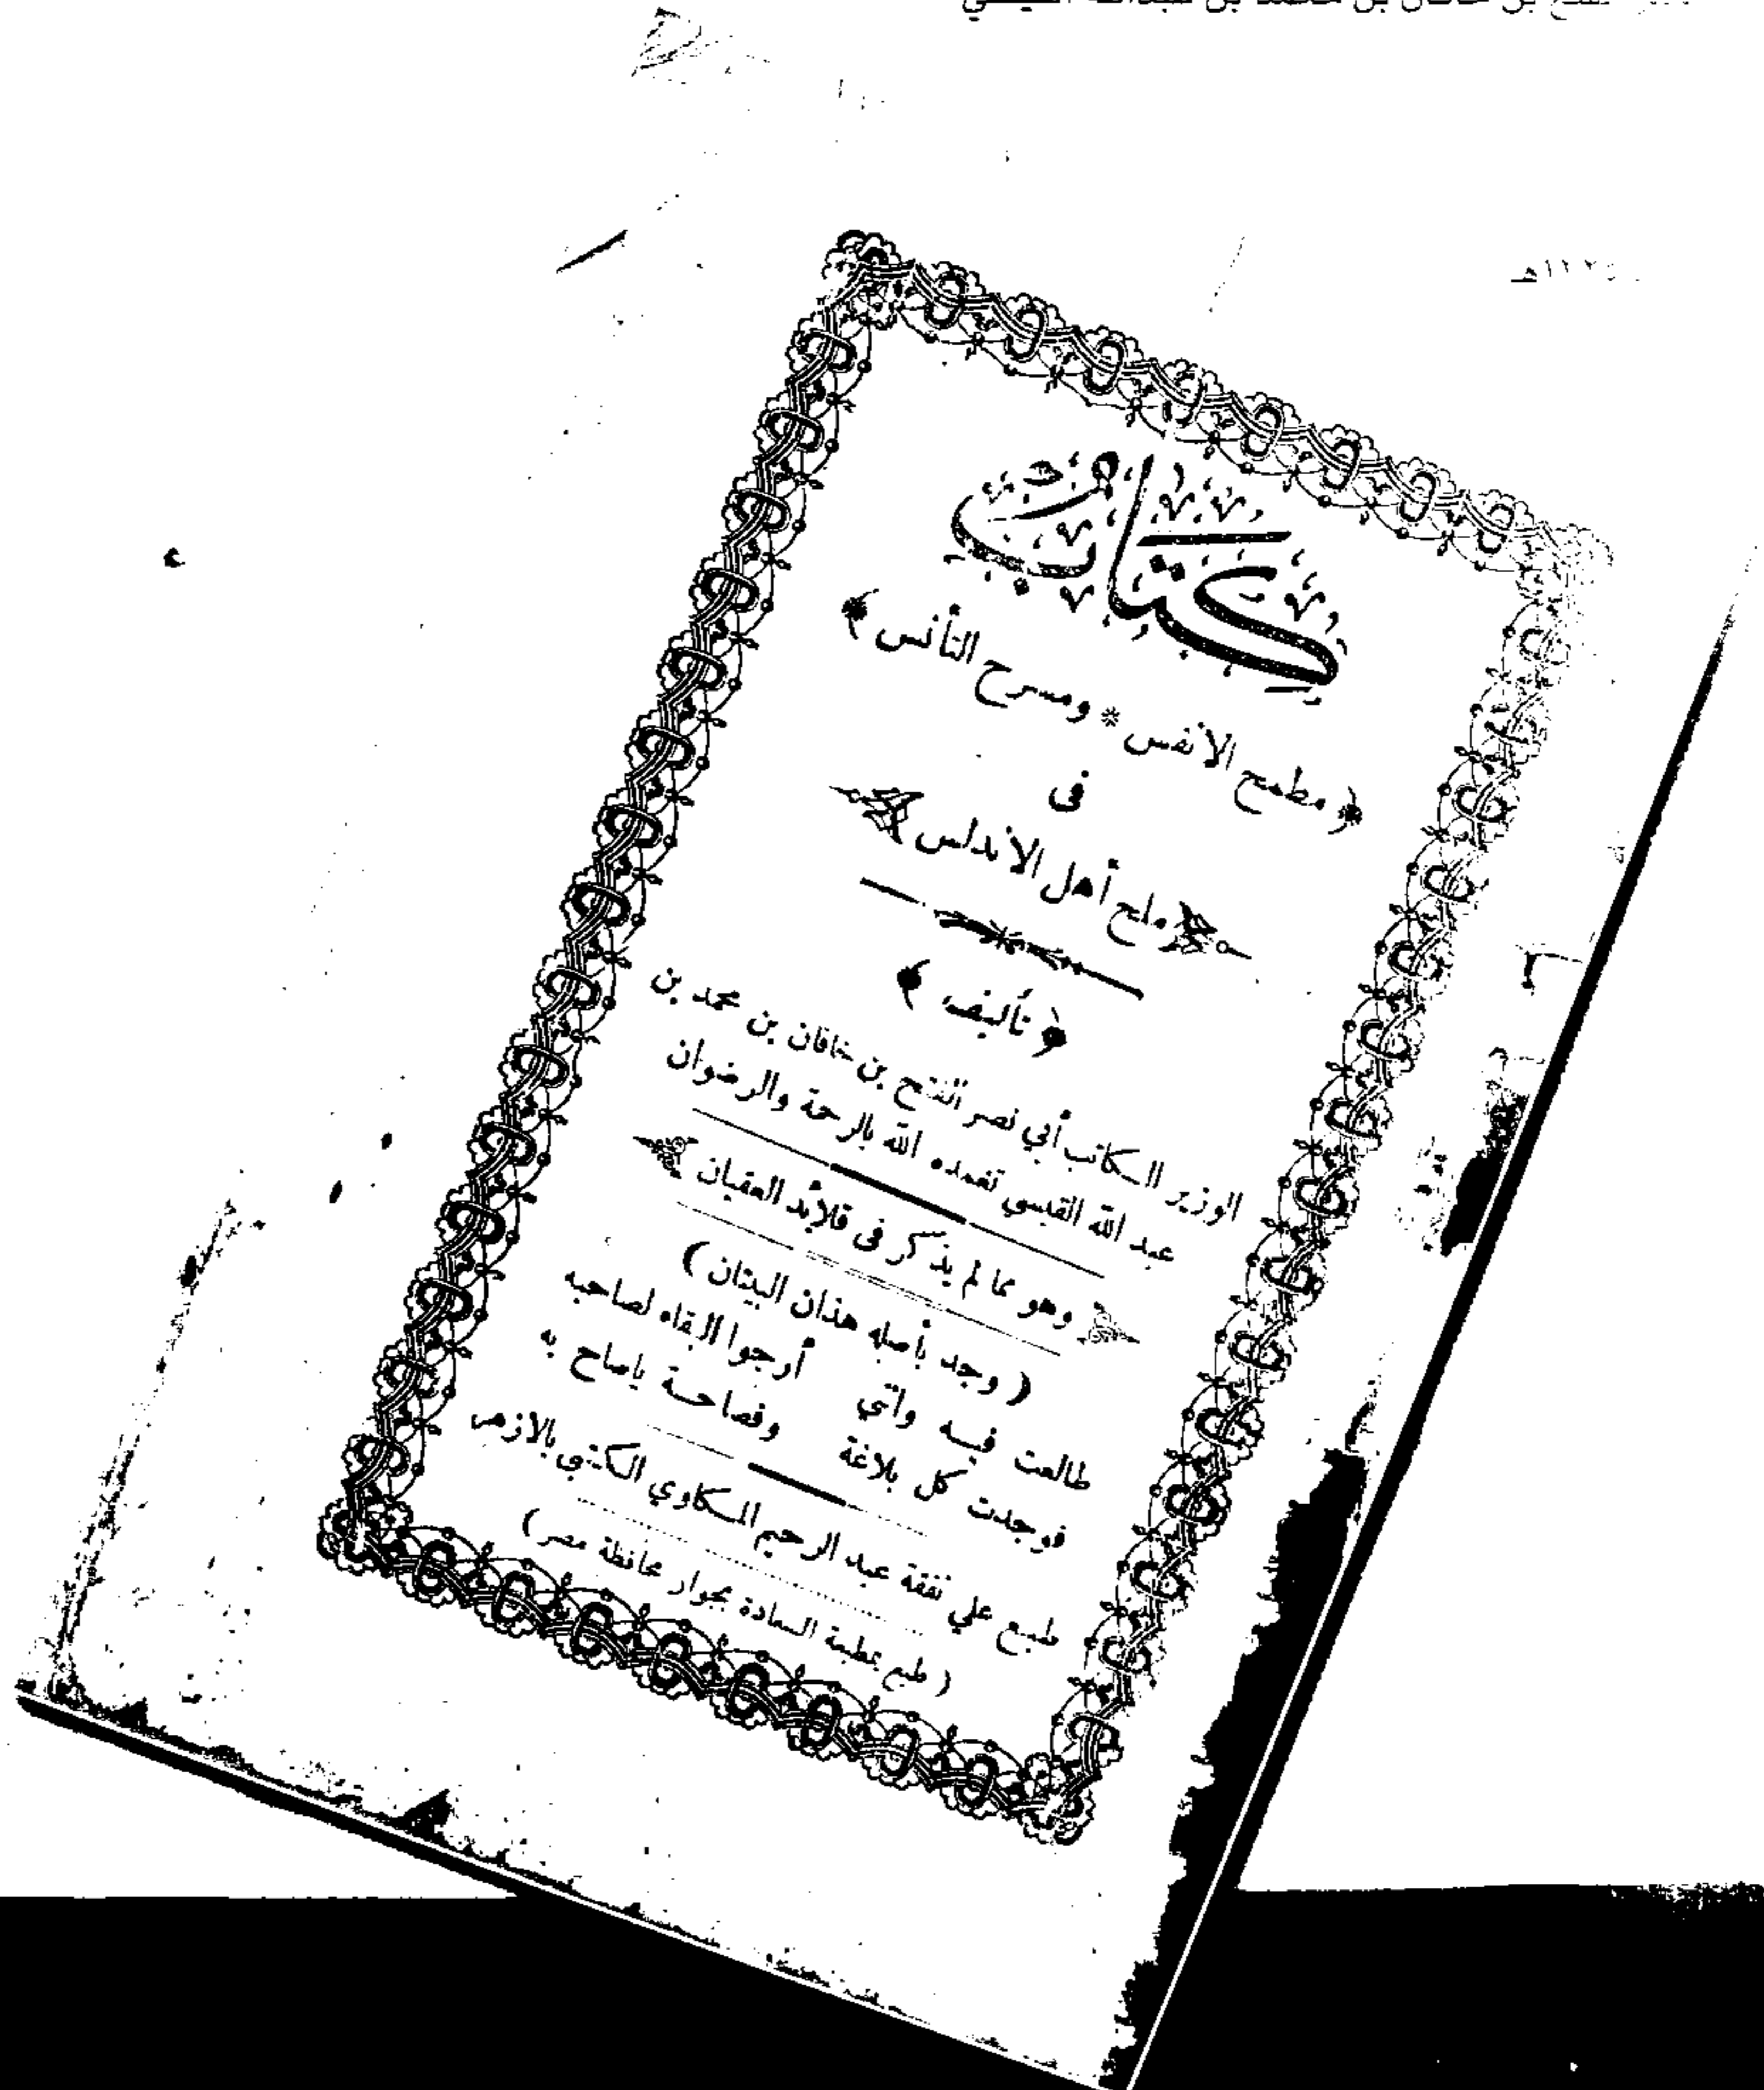 بن خاقان بن محمد بن عبدالله القيسي
كتاب
﴿ مطمح الانفس * ومسرح التأنس ﴾
فى
ملح أهل الاندلس
﴿ تأليف ﴾
الوزير الكاتب أبي نصر الفتح بن خاقان بن محمد بن
عبد الله القيسي تغمده الله بالرحمة والرضوان
وهو مما لم يذكر فى قلائد العقيان
( وجد بأصله هذان البيتان )
طالعت فيه واتي أرجوا البقاه لصاحبه
فوجدت كل بلاغة وفصاحة ياصاح به
طبع علي نفقة عبد الرحيم المكاوي الكتبي بالازهر
( طبع بمطبعة السعادة بجوار محافظة مصر )